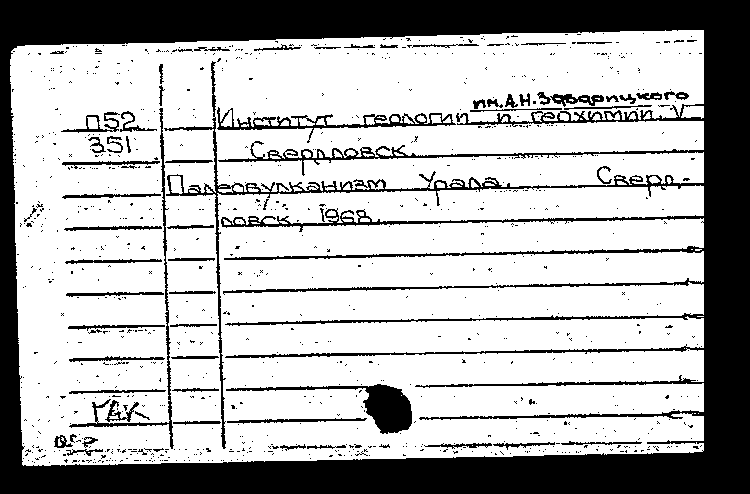 им. А.Н. Заварицкого
П52 Институт геологии и геохимии. V
351 Свердловск.
Палеовулканизм Урала. Сверд-
ловск, 1968.
ГАК